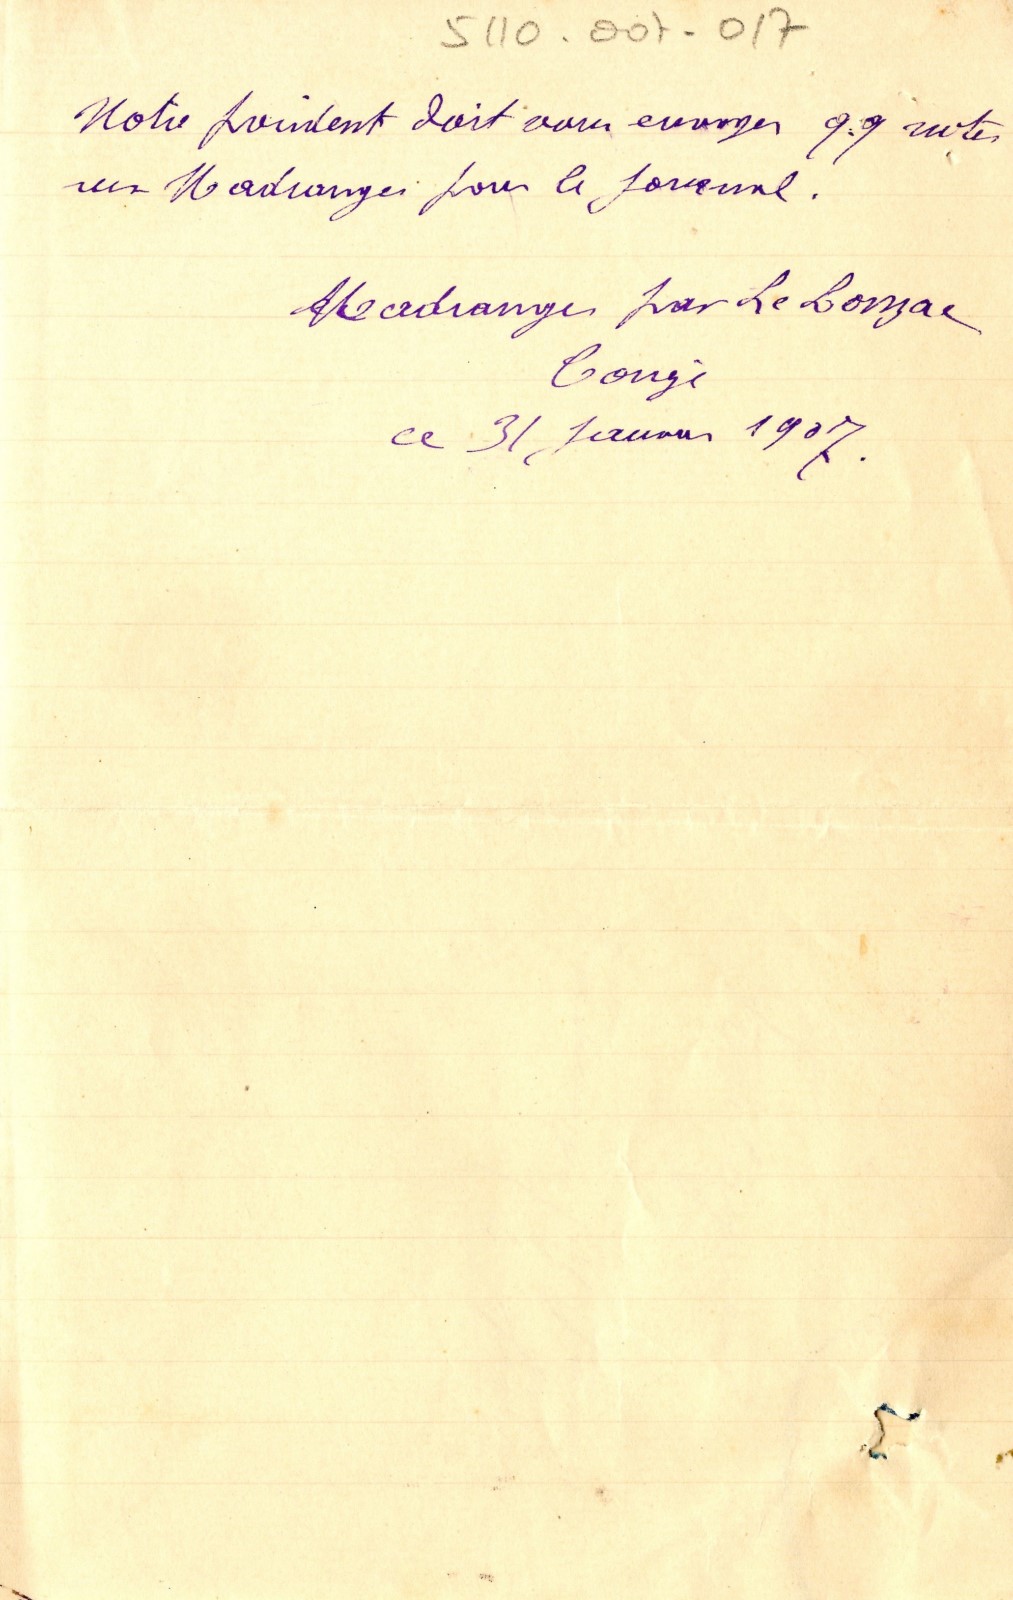 5110. 001-017
Notre président doit vous envoyer q.q notes
sur Madranges pour le journal.
Madranges par Le Lonzac
Corrèze
ce 31 janvier 1907.